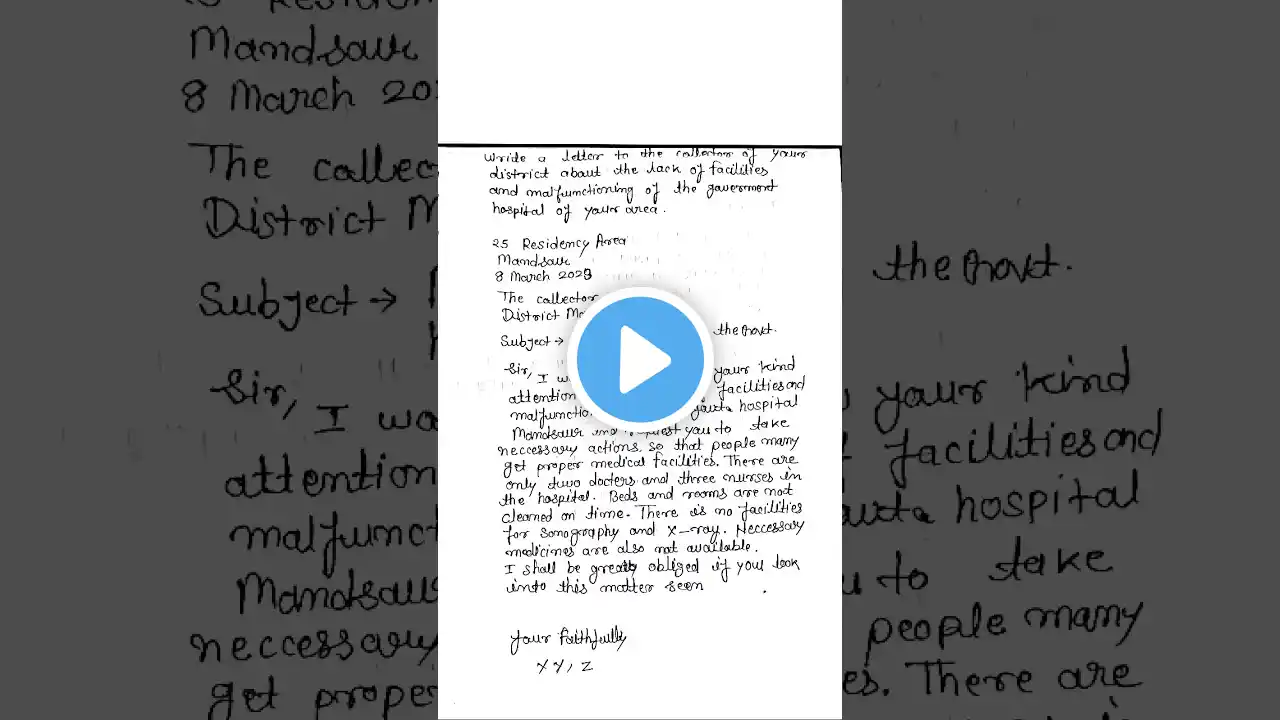 write a letter to the collector of your
district about the lack of facilities
and malfunctioning of the goverment
hospital of your area.
25 Residency Area
Mandsaur
8 March 2023
The collector
District Ma
Subject →
the Govt.
Sir, I wa
your kind
attention
facilities and
malfunctio
hospital
Mandsaur and request you to take
neccessary actions, so that people many
get proper medical facilities. There are
only two docters and three nurses in
the hospital. Beds and rooms are not
cleaned on time. There is no facilities
for sonography and X-ray. Neccessary
medicines are also not available.
I shall be greatly obliged if you look
into this matter seen
your faithfully
X Y, Z